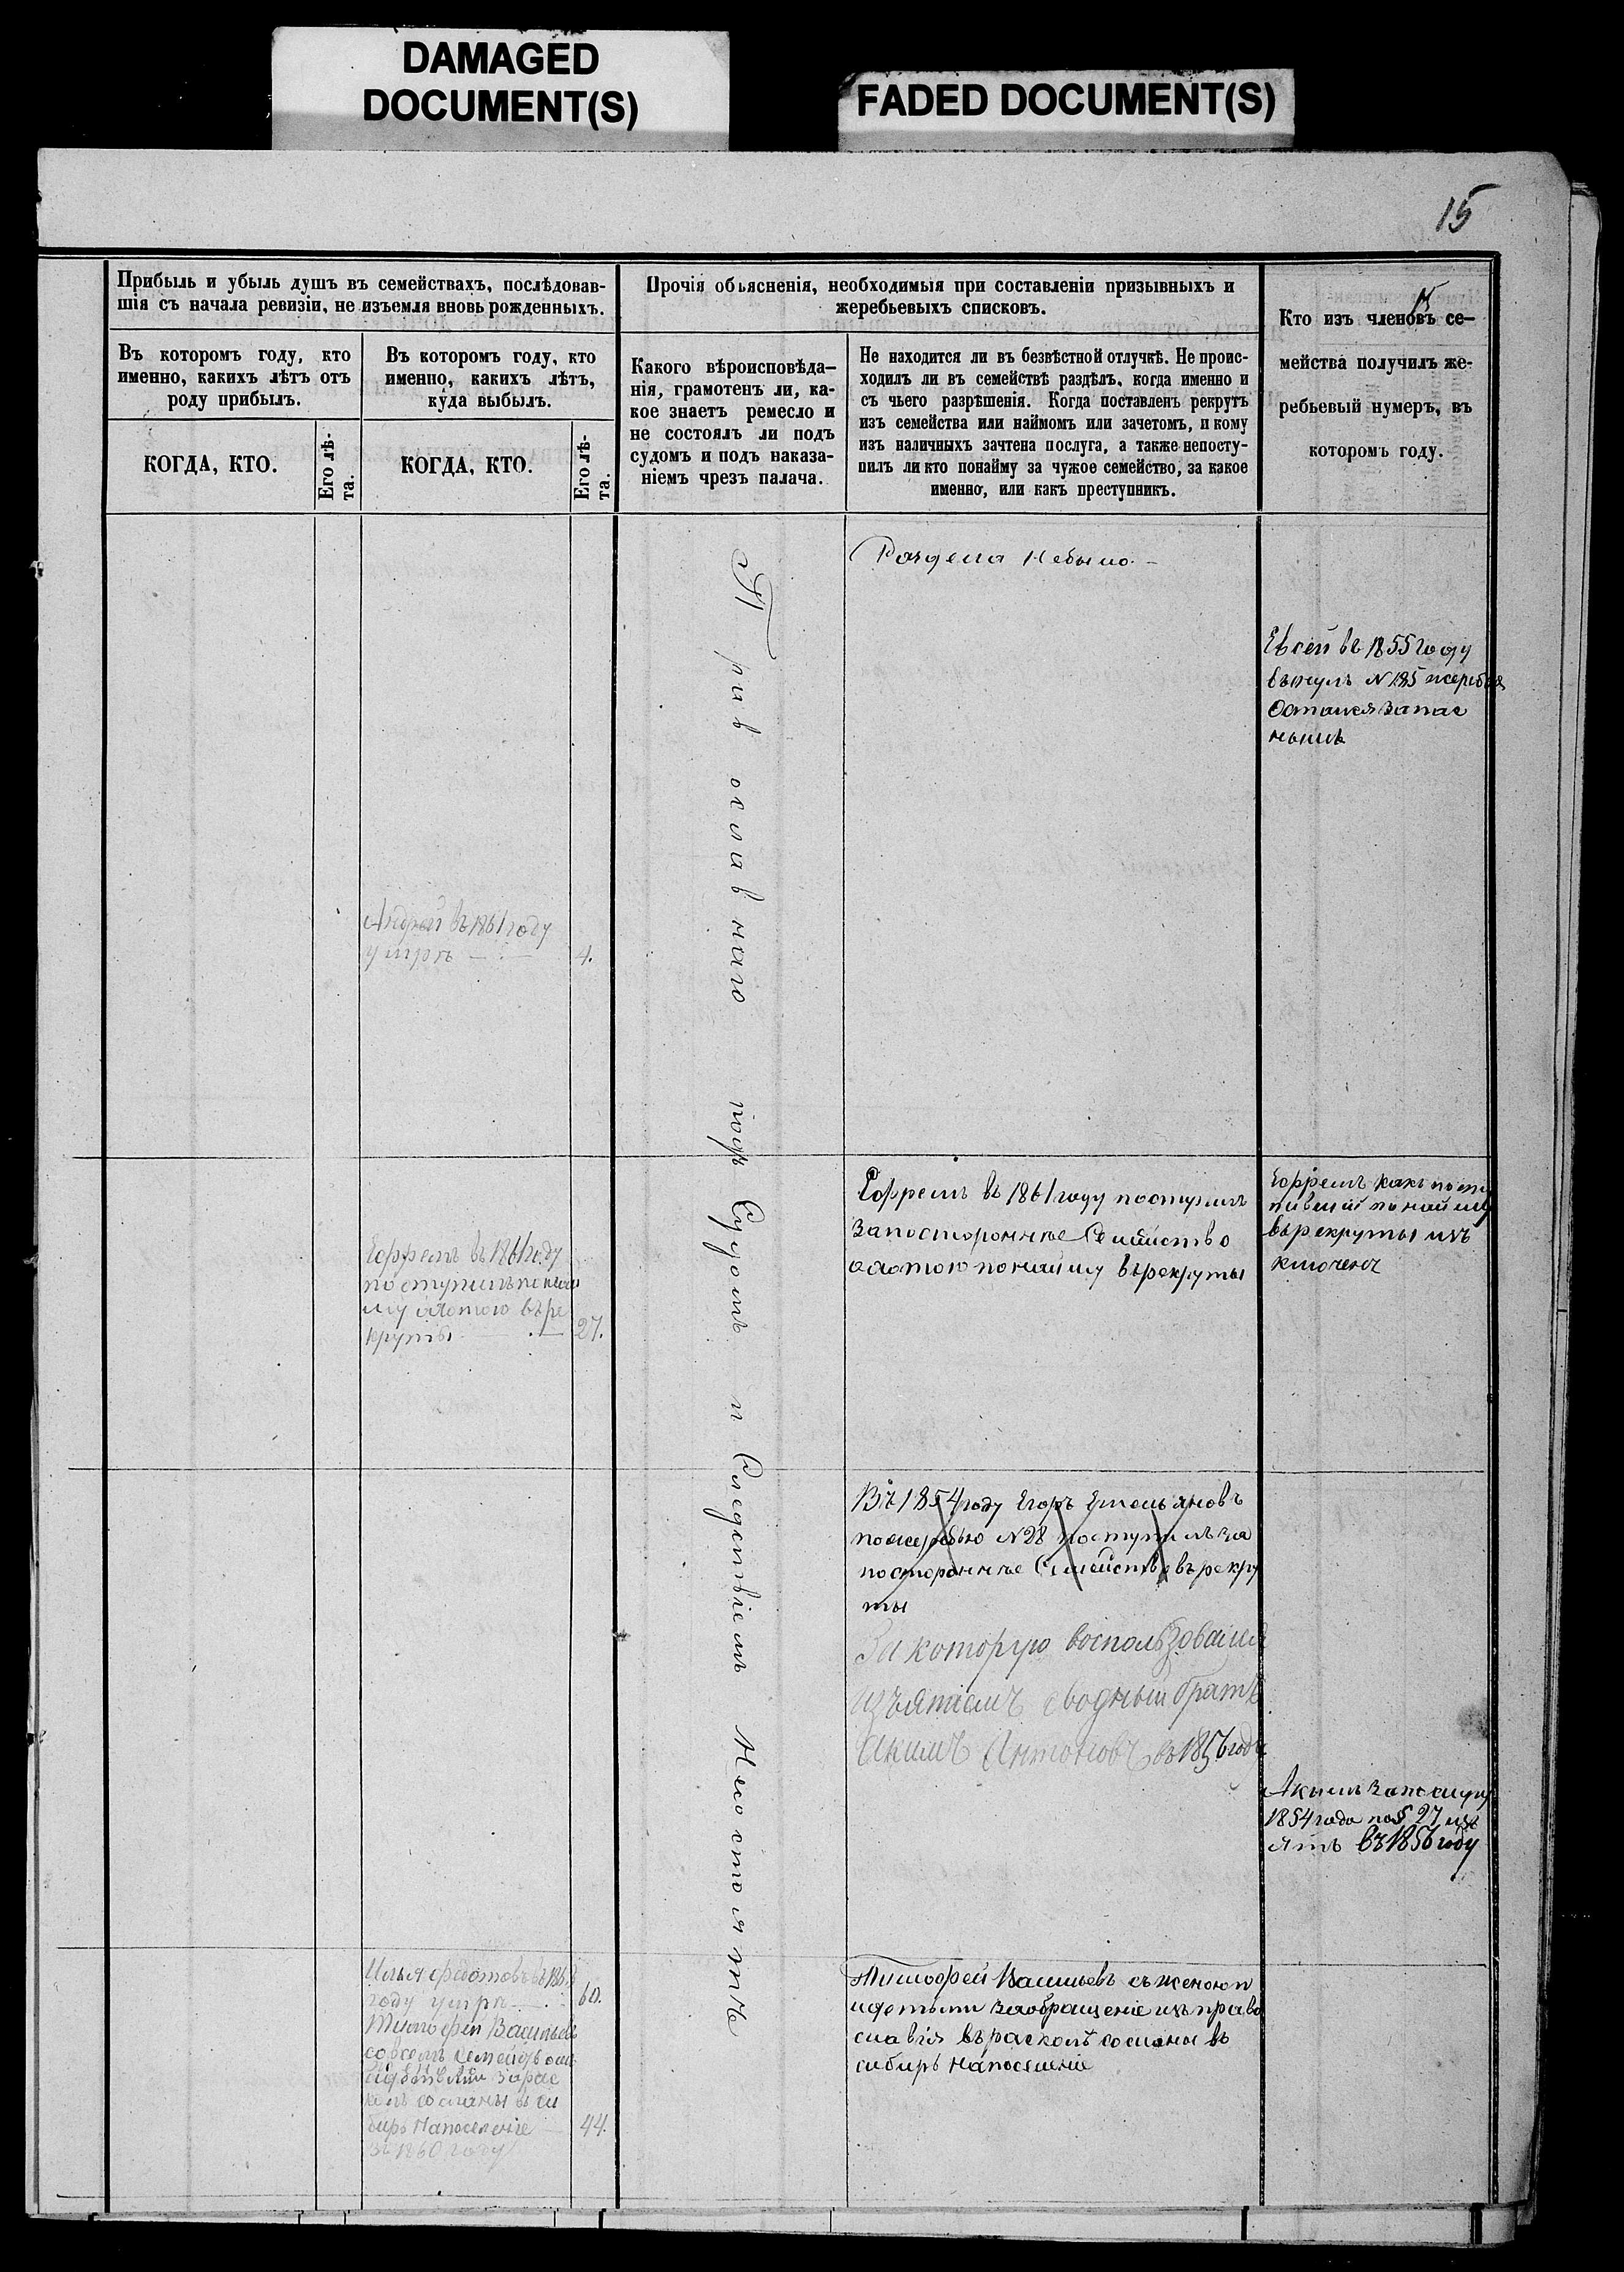 DAMAGED
DOCUMENT(S)
FADED DOCUMENT(S)
15
Прибыль и убыль душъ въ семействахъ, послѣдовав-
шія съ начала ревизіи, не изъемля вновь рожденныхъ.
Прочія обьясненія, необходимыя при составленіи призывныхъ и
жеребьевыхъ списковъ.
15
Кто изъ членовъ се-
мейства получилъ же-
ребьевый нумеръ, въ
которомъ году.
Въ которомъ году, кто
именно, какихъ лѣтъ отъ
роду прибылъ.
Въ которомъ году, кто
именно, какихъ лѣтъ,
куда выбылъ.
Какого вѣроисповѣда-
нія, грамотенъ ли, ка-
кое знаетъ ремесло и
не состоялъ ли подъ
судомъ и подъ наказа-
ніемъ чрезъ палача.
Не находится ли въ безвѣстной отлучкѣ. Не проис-
ходилъ ли въ семействѣ раздѣлъ, когда именно и
съ чьего разрѣшенія. Когда поставленъ рекрутъ
изъ семейства или наймомъ или зачетомъ, и кому
изъ наличныхъ зачтена послуга, а также непосту-
пилъ ли кто понайму за чужое семейство, за какое
именно, или какъ преступникъ.
КОГДА, КТО.
Его лѣ-
та.
КОГДА, КТО.
Его лѣ-
та.
Раздела Небыло.-
Евсей въ 1855 году
вынулъ N 185 жеребья
Остался запас
нымъ
Андрей въ 1861 году
умръ 4.
подъ Судомъ и Следствіемъ Несостоятъ
Ефремъ въ 1861 году поступилъ
запостороннее Семейство
охотою понайму върекруты
Ефремъ какъ посту
пившій понайму
върекруты изъ
ключенъ
Ефремъ въ 1861 году
поступилъ понай
му охотою въре
круты 27.
Въ 1854 году Егоръ Емельяновъ
пожеребью N 28 поступилъ за
постороннее Семейство върекру
ты
За которую воспользовался
изъятіемъ сводный братъ
Акимъ Антоновъ въ 1856 году
Акимъ запослугу
1854 года по § 27 изъ
ятъ въ 1856 году
Илья Федотовъ въ
году умръ 60.
Тимофей Васильевъ
совсемъ Семейством
зарас
колъ сосланы въ Си
бирь Напоселеніе 44.
въ 1860 году
Тимофей Васильевъ съ женою и
идетьми заобращеніе изъ право
славія върасколъ сосланы въ
сибирь Напоселеніе